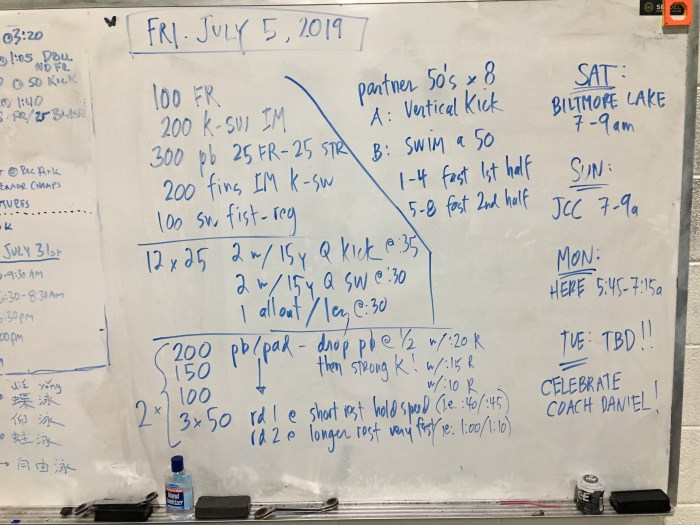 @3:20
1:05 DBLL
NO FR
@ 50 KICK
1:40
@ REC PARK
SENIOR CHAMPS
JULY 31st
-9:30 AM
:30-8:30AM
:30pm
00pm
yǒng
蝶泳
仰泳
蛙泳
→ 自由泳
FRI. JULY 5, 2019
100 FR
200 K-SW IM
300 pb 25 FR-25 STR
200 fins IM K-SW
100 SW fist-reg
12 x 25 2 w/15y Q KICK @:35
2 w/15y Q SW @:30
1 allout/leg @:30
2 x
200 pb/pad - drop pb @ 1/2 w/:20 R
150 then strong K! w/:15 R
100 w/:10 R
3 x 50 rd 1 @ short rest hold speed (i.e. :40/:45)
rd 2 @ longer rest very fast (ie: 1:00/1:10)
partner 50's x 8
A: Vertical Kick
B: SWIM a 50
1-4 fast 1st half
5-8 fast 2nd half
SAT:
BILTMORE LAKE
7-9am
SUN:
JCC 7-9a
MON:
HERE 5:45-7:15a
TUE: TBD!!
CELEBRATE
COACH DANIEL!